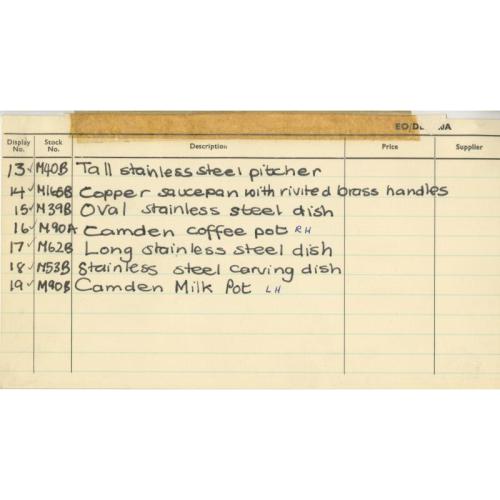 Display No. Stock No. Description Price Supplier
13 ✓ M40B Tall stainless steel pitcher
14 ✓ M165B Copper saucepan with rivited brass handles
15 ✓ M39B Oval stainless steel dish
16 ✓ M90A Camden coffee pot RH
17 ✓ M62B Long stainless steel dish
18 ✓ M53B Stainless steel carving dish
19 ✓ M90B Camden Milk Pot LH